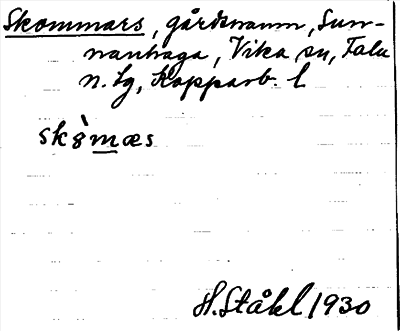 Skommars, gårdsnamn, Sun-
nanhaga, Vika sn, Falu
n. lg, Kopparb. l.
sk8̀mæs
H. Ståhl 1930